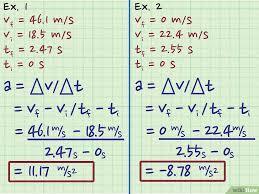 Ex. 1
v_f = 46.1 m/s
v_i = 18.5 m/s
t_f = 2.47 s
t_i = 0 s
a = Δv/Δt
= v_f - v_i/t_f - t_i
= 46.1 m/s - 18.5 m/s
2.47s - 0s
= 11.17 m/s²
Ex. 2
v_f = 0 m/s
v_i = 22.4 m/s
t_f = 2.55 s
t_i = 0 s
a = Δv/Δt
= v_f - v_i/t_f - t_i
= 0 m/s - 22.4 m/s
2.55s - 0s
= -8.78 m/s²
wikiHow